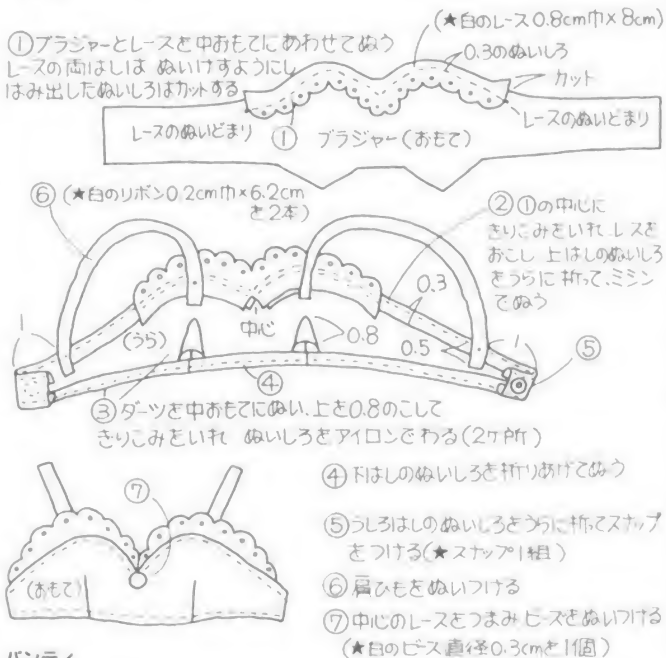 (★白のレース0.8cm巾×8cm)
①ブラジャーとレースを中おもてにあわせてぬう
レースの両はしは ぬいけすようにし
はみ出したぬいしろはカットする
0.3のぬいしろ
カット
レースのぬいどまり
①
ブラジャー(おもて)
レースのぬいどまり
⑥(★白のリボン0.2cm巾×6.2cm
を2本)
②①の中心に
きりこみをいれ レースを
おこし 上はしのぬいしろ
をうらに折って、ミシン
でぬう
0.3
中心
(うら)
0.8
0.5
1
1
⑤
④
③ダーツを中おもてにぬい、上を0.8のこして
きりこみをいれ ぬいしろをアイロンでわる(2ヶ所)
⑦
(おもて)
④下はしのぬいしろを折りあげてぬう
⑤うしろはしのぬいしろをうらに折ってスナップ
をつける(★スナップ1組)
⑥肩ひもをぬいつける
⑦中心のレースをつまみビーズをぬいつける
(★白のビーズ直径0.3cmを1個)
パンティ